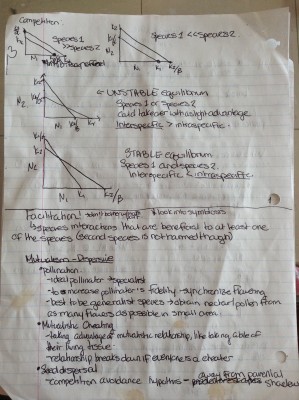 Competition:
Species 1
>> Species 2
Species 1 << Species 2
UNSTABLE equilibrium
Species 1 or Species 2
could takeover with a slight advantage
Interspecific > intraspecific
STABLE equilibrium
Species 1 and species 2
Interspecific < intraspecific
N₂
N₁
K₁
K₂/β
Facilitation: * look into symbiosis
↳ species interactions that are beneficial to at least one
of the species (second species is not harmed though)
Mutualism - Dispersive
• pollination
- ideal pollinator → specialist
- to increase pollinator's fidelity → synchronize flowering
- best to be generalist species → obtain nectar/pollen from
as many flowers as possible in small area
• Mutualistic Cheating
- taking advantage of mutualistic relationship, like taking
their living tissue
- relationship breaks down if everyone is a cheater
• Seed dispersal
- competition avoidance hypothesis - away from parental
shadows